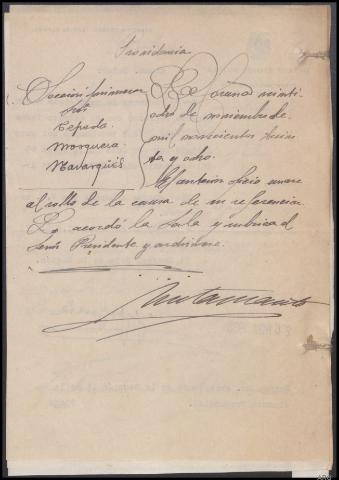 Providencia
Sección primera
Srs.
Cepeda.
Mosquera
Navarqués
La Coruña veinti
ocho de noviembre de
mil novecientos trein
ta y ocho.
El anterior oficio unase
al rollo de la causa de su referencia.
Lo acordó la Sala y rubrica el
Señor Presidente y